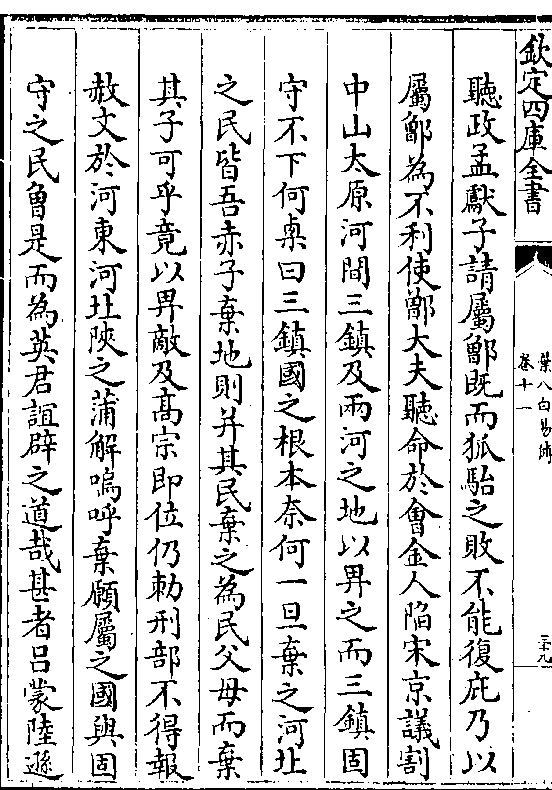 欽定四庫全書
葉八白易傳
卷十一
三十九
聽政孟獻子請屬鄫既而狐駘之敗不能復庇乃以
屬鄫為不利使鄫大夫聽命於會金人陷宋京議割
中山太原河間三鎮及兩河之地以畀之而三鎮固
守不下何㮚曰三鎮國之根本奈何一旦棄之河北
之民皆吾赤子棄地則并其民棄之為民父母而棄
其子可乎竟以畀敵及高宗即位仍勅刑部不得報
赦文於河東河北陜之蒲解嗚呼棄願屬之國與固
守之民曾是而為英君誼辟之道哉甚者呂蒙陸遜